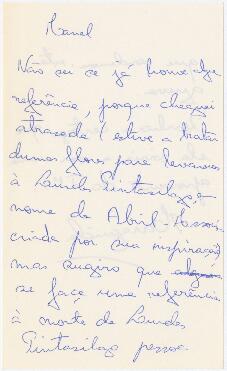 Manel
Não sei se já houve alguma
referência, porque cheguei
atrasada (estive a tratar
dumas flores para levarmos
à Lourdes Pintasilgo e
nome do Abril-Associ
criada por sua inspiração)
mas sugiro que
se faça uma referência
à morte de Lourdes
Pintasilgo pessoa